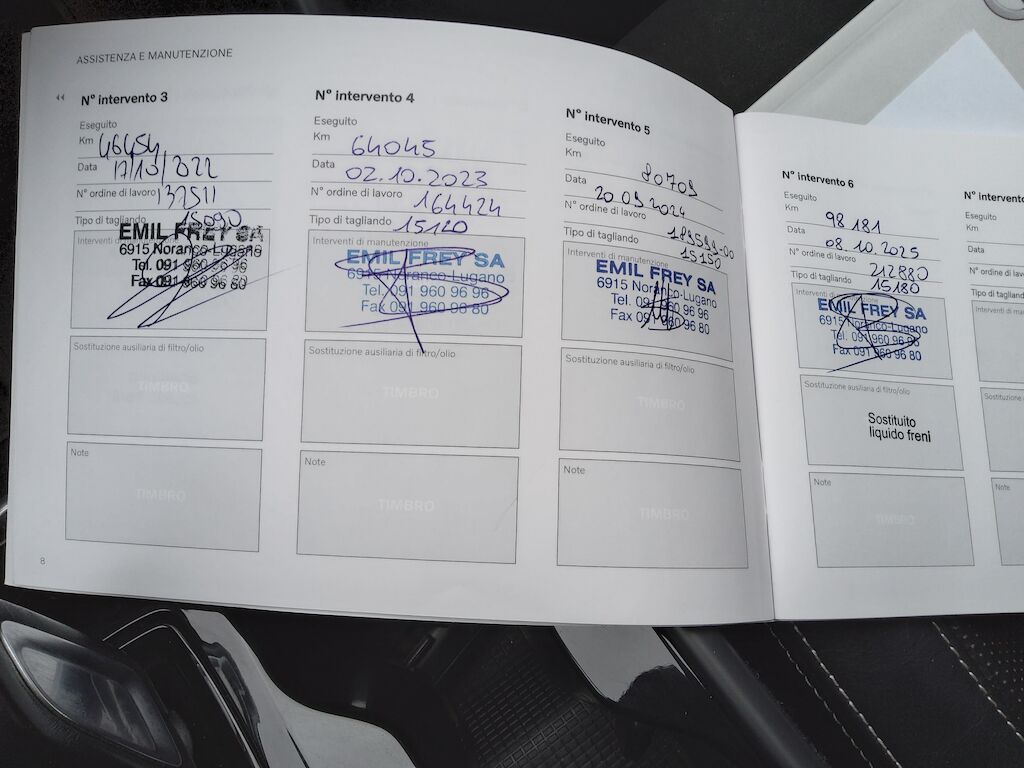 ASSISTENZA E MANUTENZIONE
N° intervento 3
Eseguito
Km 46454
Data 17/10/2022
N° ordine di lavoro 137511
Tipo di tagliando 15090
Interventi di
EMIL FREY SA
6915 Noranco-Lugano
Tel. 091 960 96 96
Fax 091 960 96 80
Sostituzione ausiliaria di filtro/olio
TIMBRO
Note
TIMBRO
8
N° intervento 4
Eseguito
Km 64045
Data 02.10.2023
N° ordine di lavoro 164424
Tipo di tagliando 15120
Interventi di manutenzione
EMIL FREY SA
6915 Noranco-Lugano
Tel. 091 960 96 96
Fax 091 960 96 80
Sostituzione ausiliaria di filtro/olio
TIMBRO
Note
TIMBRO
N° intervento 5
Eseguito
Km 80709
Data 20 09 2024
N° ordine di lavoro 189599-00
Tipo di tagliando 15150
Interventi di manutenzione
EMIL FREY SA
6915 Noranco-Lugano
Tel. 091 960 96 96
Fax 091 960 96 80
Sostituzione ausiliaria di filtro/olio
TIMBRO
Note
TIMBRO
N° intervento 6
Eseguito
Km 98 181
Data 08.10.2025
N° ordine di lavoro 212880
Tipo di tagliando 15180
Interventi di manutenzione
EMIL FREY SA
6915 Noranco-Lugano
Tel. 091 960 96 96
Fax 091 960 96 80
Sostituzione ausiliaria di filtro/olio
Sostituito
liquido freni
Note
TIMBRO
N° intervento
Eseguito
Km
Data
N° ordine di lavo
Tipo di tagliand
Interventi di man
Sostituzione
Note